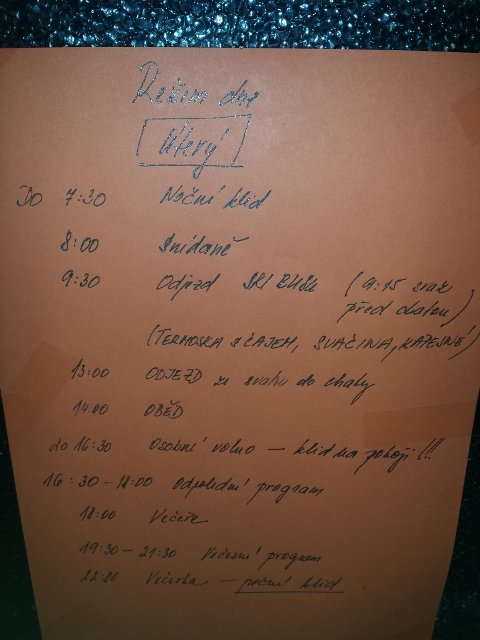 Režim dne
Úterý
Do 7:30 Noční klid
8:00 Snídaně
9:30 Odjezd SKI BUSU (9:15 sraz
před chatou)
(TERMOSKA S ČAJEM, SVAČINA, KAPESNÉ)
13:00 ODJEZD ze svahu do chaty
14.00 OBĚD
do 16:30 Osobní volno – klid na pokoji!!!
16:30-18:00 Odpolední program
18:00 Večeře
19:30-21:30 Večerní program
22:00 Večerka – noční klid